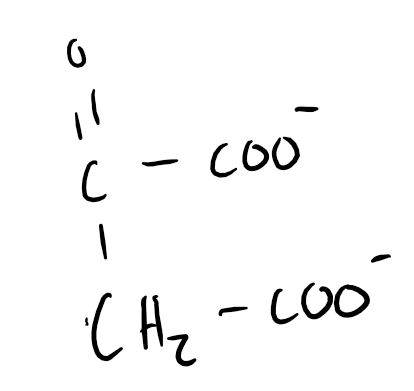 O
||
C - COO⁻
|
CH₂ - COO⁻